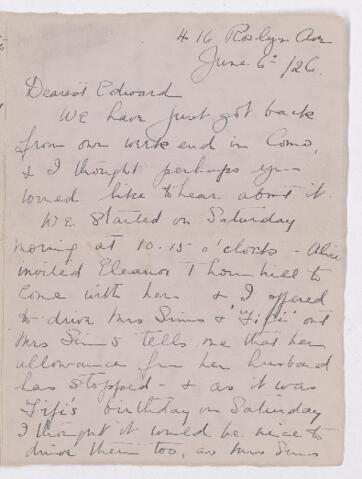 416 Roslyn Ave
June 6th /26.
Dearest Edward
We have just got back
from our week end in Como,
& I thought perhaps you
would like to hear about it.
We started on Saturday
morning at 10.15 o'clock - Alice
invited Eleanor Thornhill to
come with her & I offered
to drive Mrs Sims & "Fifi" out
Mrs Sims tells me that her
allowance from her husband
has stopped - & as it was
Fifi's birthday on Saturday
I thought it would be nice to
drive them too, as Mrs Sims